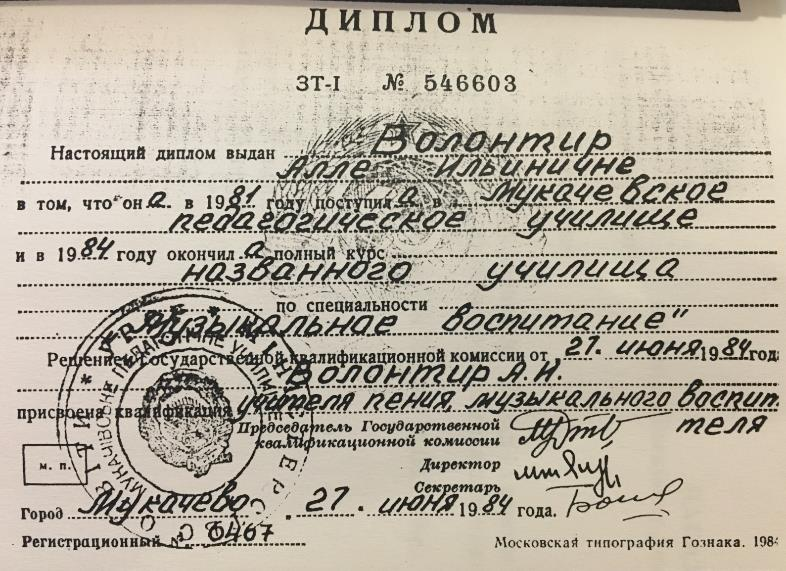 ДИПЛОМ
ЗТ-I № 546603
Настоящий диплом выдан Волонтир
Алле Ильиничне
в том, что он а в 1981 году поступил а в Мукачевское
педагогическое училище
и в 1984 году окончил а полный курс
названного училища
по специальности
"Музыкальное воспитание"
Решением Государственной квалификационной комиссии от 27. июня 1984 года
Волонтир А.И.
присвоена квалификация учителя пения, музыкального воспита
теля
Председатель Государственной
квалификационной комиссии
Директор
Секретарь
м. п.
Город Мукачево . 27 . июня 1984 года.
Регистрационный № 6467
Московская типография Гознака. 1984